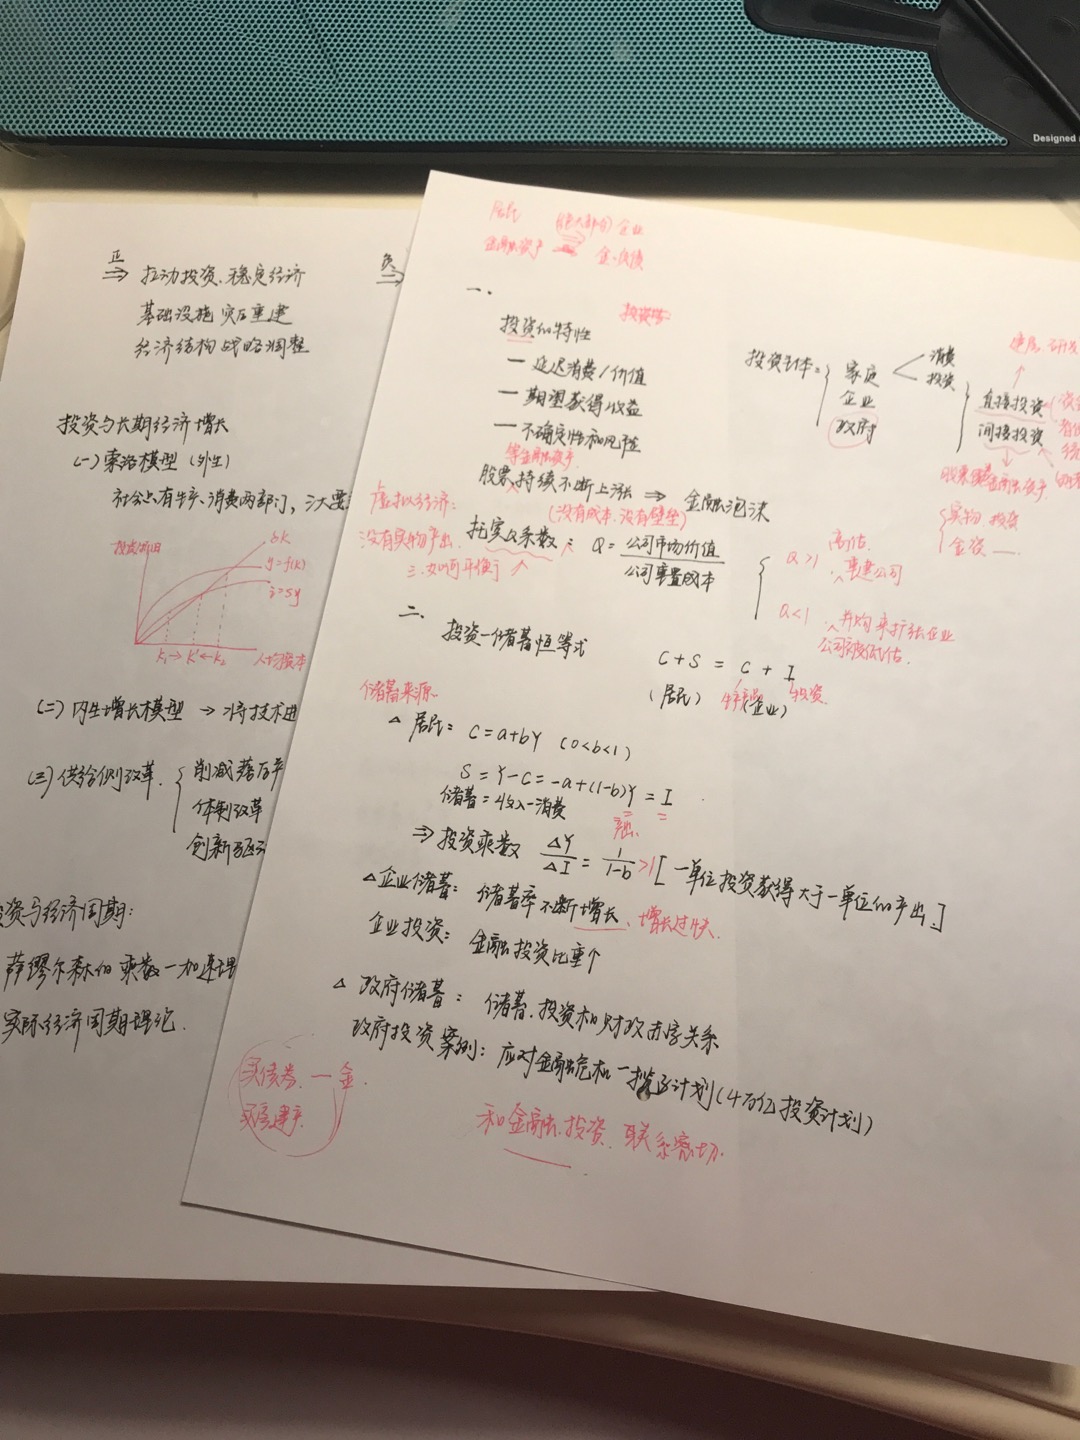 Designed
正
⇒ 拉动投资、稳定经济
基础设施 灾后重建
经济结构 战略调整
投资与长期经济增长
(一) 索洛模型 (外生)
社会只有生产、消费两部门,
δk
y=f(k)
i=sy
k₁→k*←k₂ 人均资本
(二) 内生增长模型 → 将技术进
(三) 供给侧改革
削减落后产
体制改革
创新驱动
资与经济周期:
萨缪尔森的乘数一加速理
实际经济周期理论.
居民 (绝大部分) 企业
金融资产
一.
投资的特性
— 延迟消费/价值
— 期望获得收益
— 不确定性和风险
等金融资产
股票 持续不断上涨 ⇒ 金融泡沫
投资主体=
家庭
企业
政府
消费
投资
直接投资
间接投资
实物投资
金资 —
虚拟经济:
没有实物产出.
(没有成本.没有壁垒)
托宾Q系数: Q= 公司市场价值 / 公司重置成本
三.如何平衡于
Q>1 高估. 重建公司
Q<1 并购来扩张企业
公司被低估.
二.
投资一储蓄恒等式
C+S = C + I
(居民) (企业) 投资
储蓄来源.
△ 居民: C=a+bY (0<b<1)
S=Y-C=-a+(1-b)Y = I
储蓄=收入-消费
⇒ 投资乘数 ΔY/ΔI = 1/(1-b) >1 [一单位投资获得大于一单位的产出.]
△ 企业储蓄: 储蓄率不断增长、增长过快.
企业投资: 金融投资比重个
△ 政府储蓄: 储蓄、投资和财政赤字关系
政府投资案例: 应对金融危机一揽子计划(4万亿投资计划)
买债券. 一 金.
和金融.投资. 联系密切.